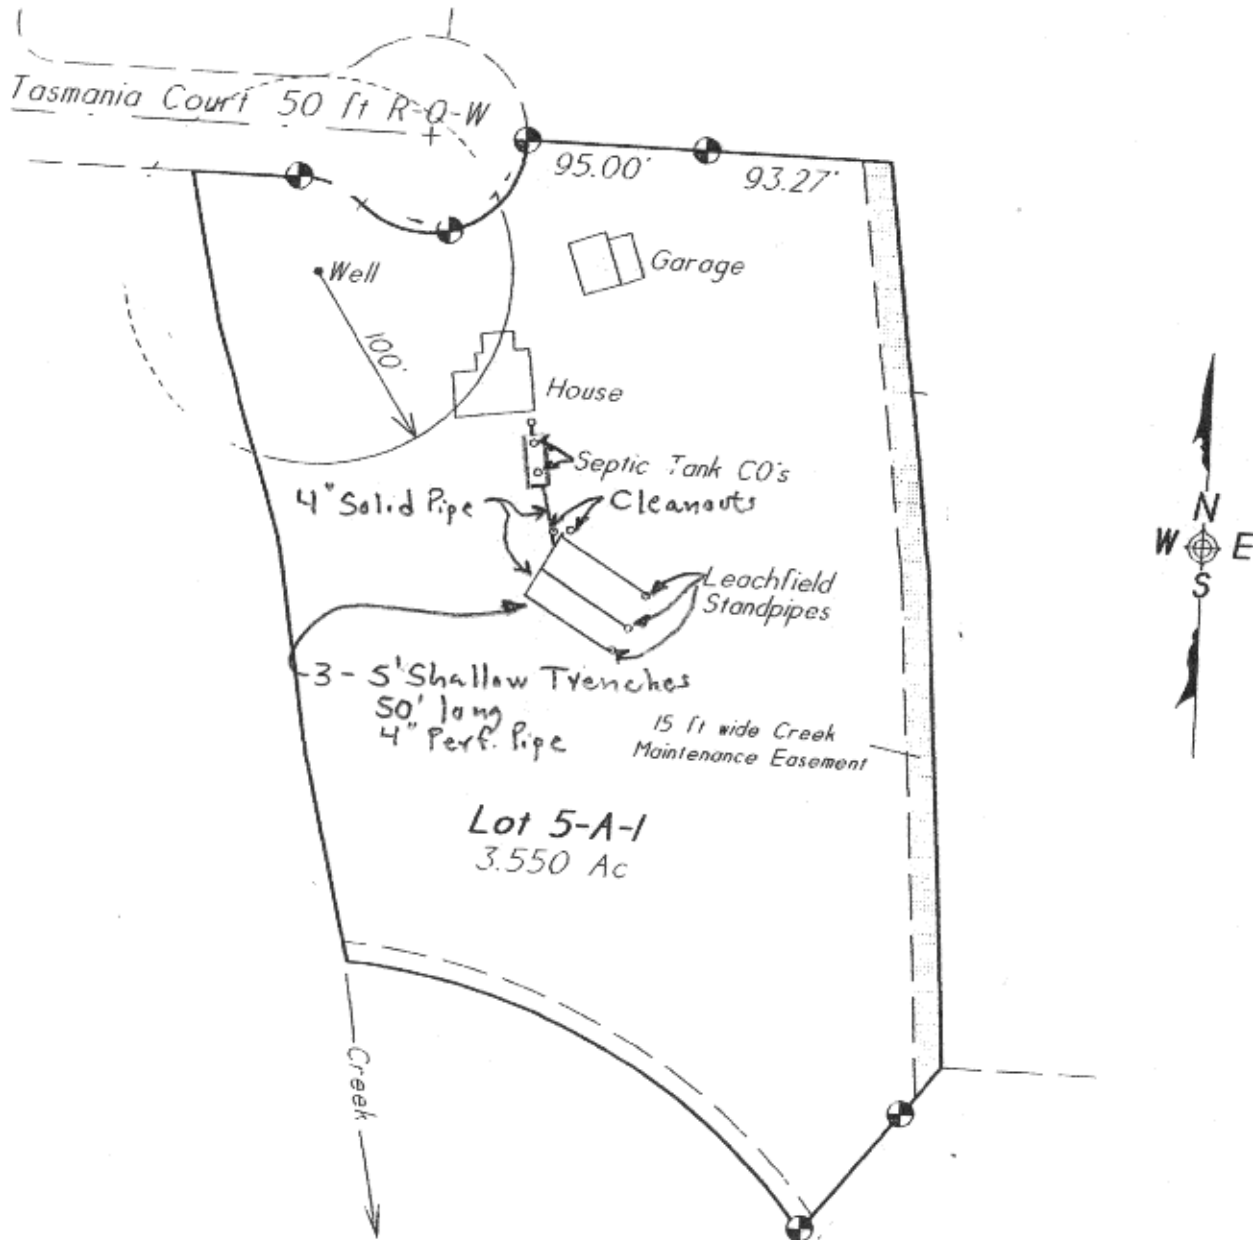 Tasmania Court 50 ft R-O-W
95.00'
93.27'
Well
Garage
100'
House
Septic Tank CO's
4" Solid Pipe
Cleanouts
Leachfield
Standpipes
3 - 5' Shallow Trenches
50' long
4" Perf. Pipe
15 ft wide Creek
Maintenance Easement
Lot 5-A-1
3.550 Ac
Creek
N
W E
S